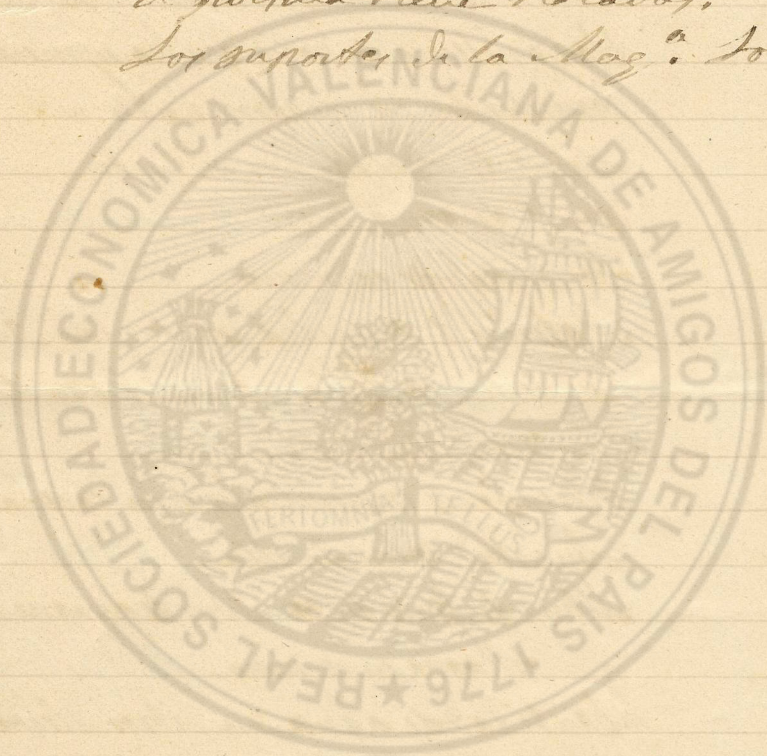 Los suportes de la Maqª. So
REAL SOCIEDAD ECONOMICA VALENCIANA DE AMIGOS DEL PAIS 1776 ★
FERT OMNIA TELLUS